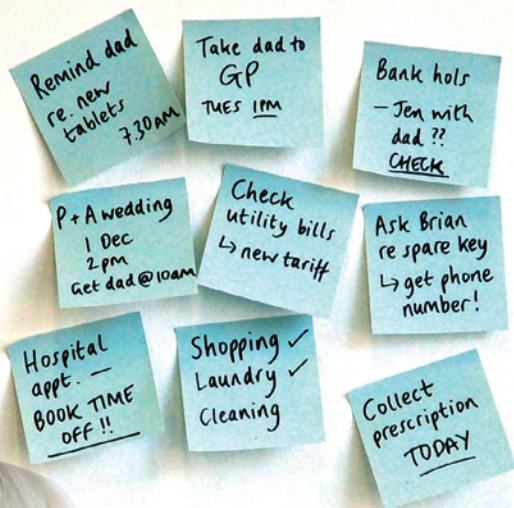 Remind dad
re. new
tablets
7.30AM
Take dad to
GP
TUES 1PM
Bank hols
– Jen with
dad ??
CHECK
P + A wedding
1 Dec
2pm
Get dad @ 10am
Check
utility bills
↳ new tariff
Ask Brian
re spare key
↳ get phone
number!
Hospital
appt. —
BOOK TIME
OFF !!
Shopping ✓
Laundry ✓
Cleaning
Collect
prescription
TODAY